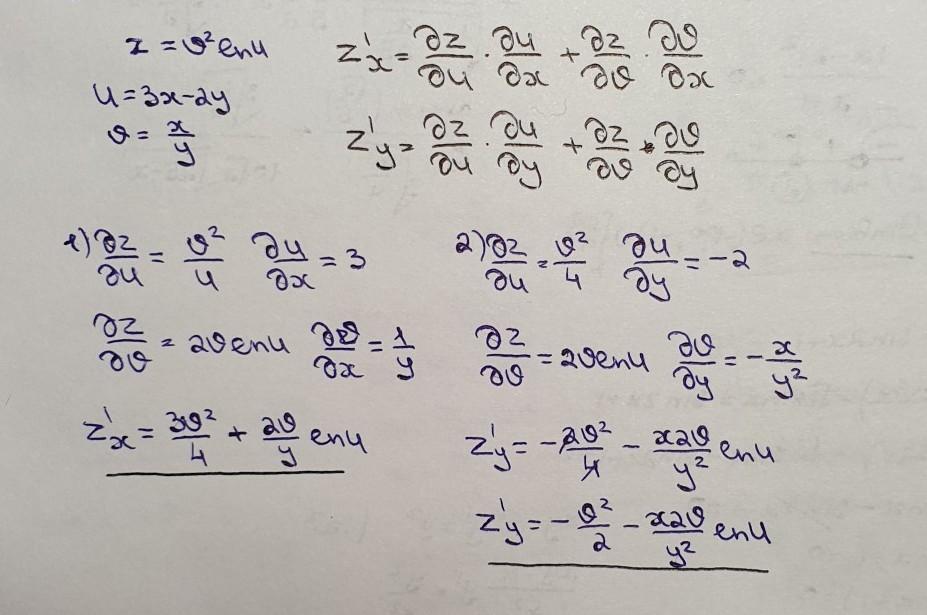 z = ϑ² ln u
u = 3x - 2y
ϑ = x/y
z'x = ∂z/∂u · ∂u/∂x + ∂z/∂ϑ · ∂ϑ/∂x
z'y = ∂z/∂u · ∂u/∂y + ∂z/∂ϑ · ∂ϑ/∂y
1) ∂z/∂u = ϑ²/u ∂u/∂x = 3
∂z/∂ϑ = 2ϑ ln u ∂ϑ/∂x = 1/y
z'x = 3ϑ²/4 + 2ϑ/y ln u
2) ∂z/∂u = ϑ²/4 ∂u/∂y = -2
∂z/∂ϑ = 2ϑ ln u ∂ϑ/∂y = -x/y²
z'y = -2ϑ²/4 - x2ϑ/y² ln u
z'y = -ϑ²/2 - x2ϑ/y² ln u